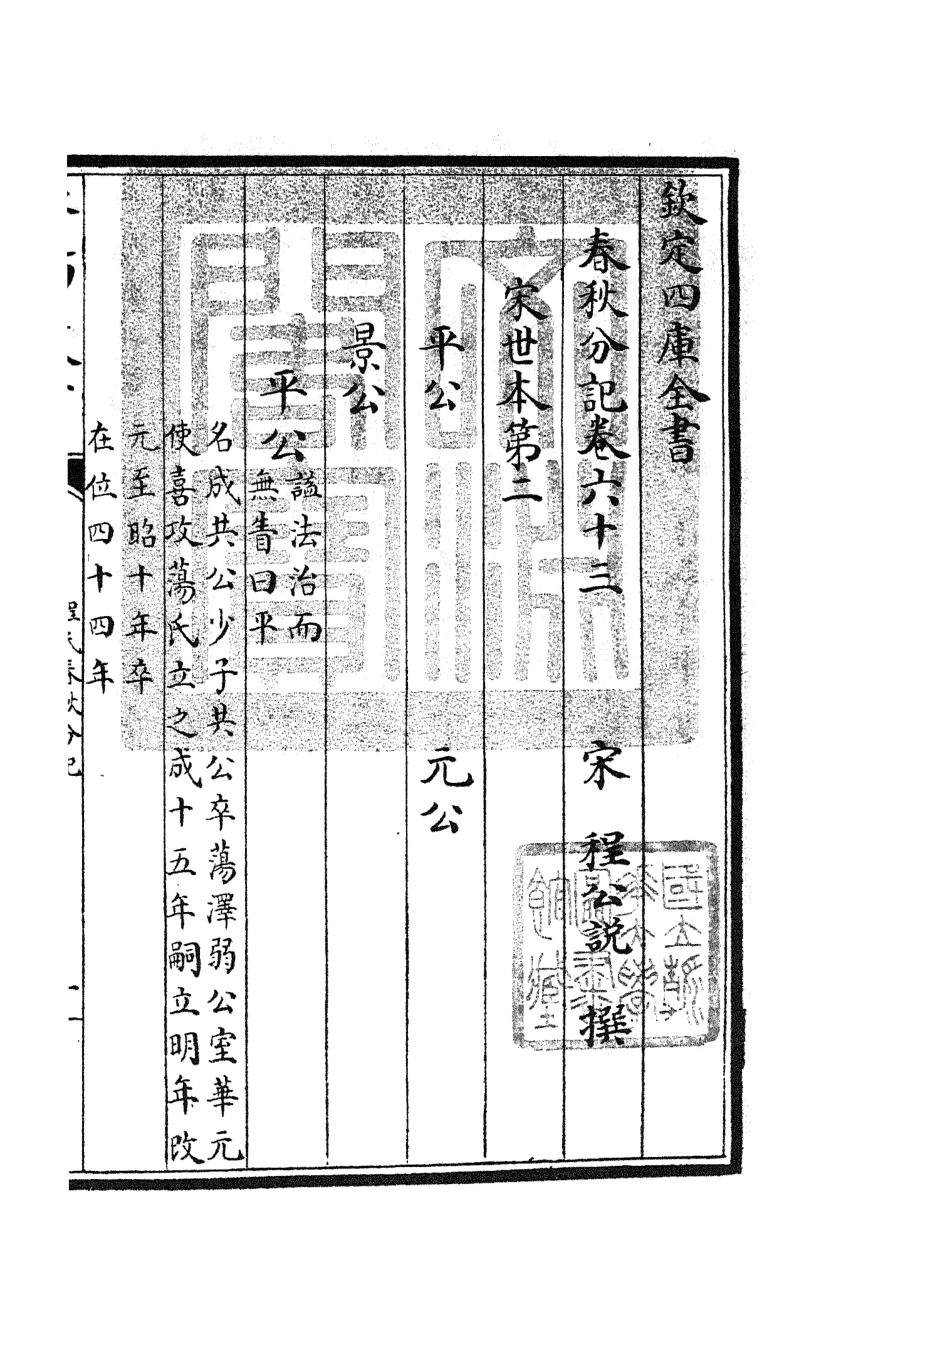 欽定四庫全書
春秋分記卷六十三
宋 程公説 撰
宋世本第二
平公 元公
景公
平公
諡法治而
無眚曰平
名成共公少子共公卒蕩澤弱公室華元
使喜攻蕩氏立之成十五年嗣立明年改
元至昭十年卒
在位四十四年
程氏春秋分記